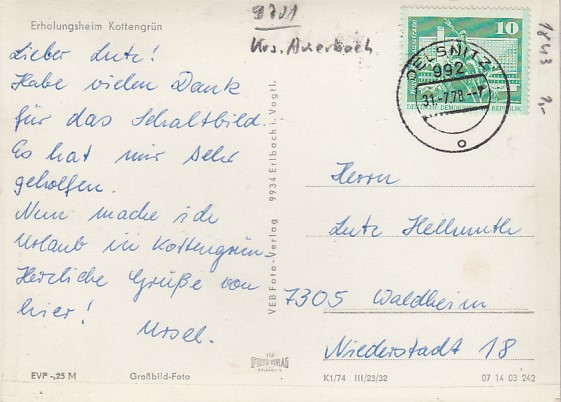 Erholungsheim Kottengrün
9701
Krs. Auerbach
Lieber Lutz!
Habe vielen Dank
für das Schaltbild.
Es hat mir sehr
geholfen.
Nun mache ich
Urlaub in Kottengrün.
Herzliche Grüße von
hier!
Ursel.
EVP -,25 M
Großbild-Foto
VEB Foto-Verlag 9934 Erlbach i. Vogtl.
10
OELSNITZ
992
31.-7.78.-
1843 2,-
Herrn
Lutz Hellmuth
7305 Waldheim
Niederstadt 18
K1/74 III/23/32
07 14 03 242